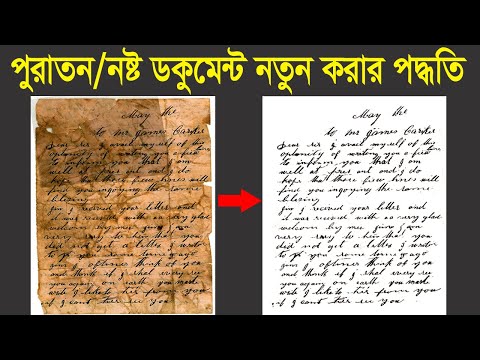 পুরাতন/নষ্ট ডকুমেন্ট নতুন করার পদ্ধতি
May the
to Mr James Carter
Dear sir I avail myself of thy
opitunity of writing you a few
to inform you that I am
well at present and I do
hope that these few lines will
find you ingoying the same
blessing
you I received your letter and
it was received with as very glad
welcom by me
very sorry to hear that you
did not get a letter I wrote
to you some time ago
I oftener think of you
and think if I shal every see
you again on earth you must
write I like to her from you
if I cant ther see you
May the
to Mr James Carter
Dear sir I avail myself of thy
opitunity of writing you a few
to inform you that I am
well at present and I do
hope that these few lines will
find you ingoying the same
blessing
you I received your letter and
it was received with as very glad
welcom by me
very sorry to hear that you
did not get a letter I wrote
to you some time ago
I oftener think of you
and think if I shal every see
you again on earth you must
write I like to her from you
if I cant ther see you